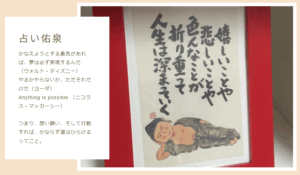 占い佑泉
かなえようとする勇気があれ
ば、夢は必ず実現するんだ
（ウォルト・ディズニー）
やるかやらないか、ただそれだ
けだ（ヨーダ）
Anything is possible （ニコラ
ス・マッカーシー）
つまり、想い願い、そして行動
すれば、かならず道はひらける
ってこと。
嬉しいことや
悲しいことや
色んなことが
折り重て
人生は深まっていく